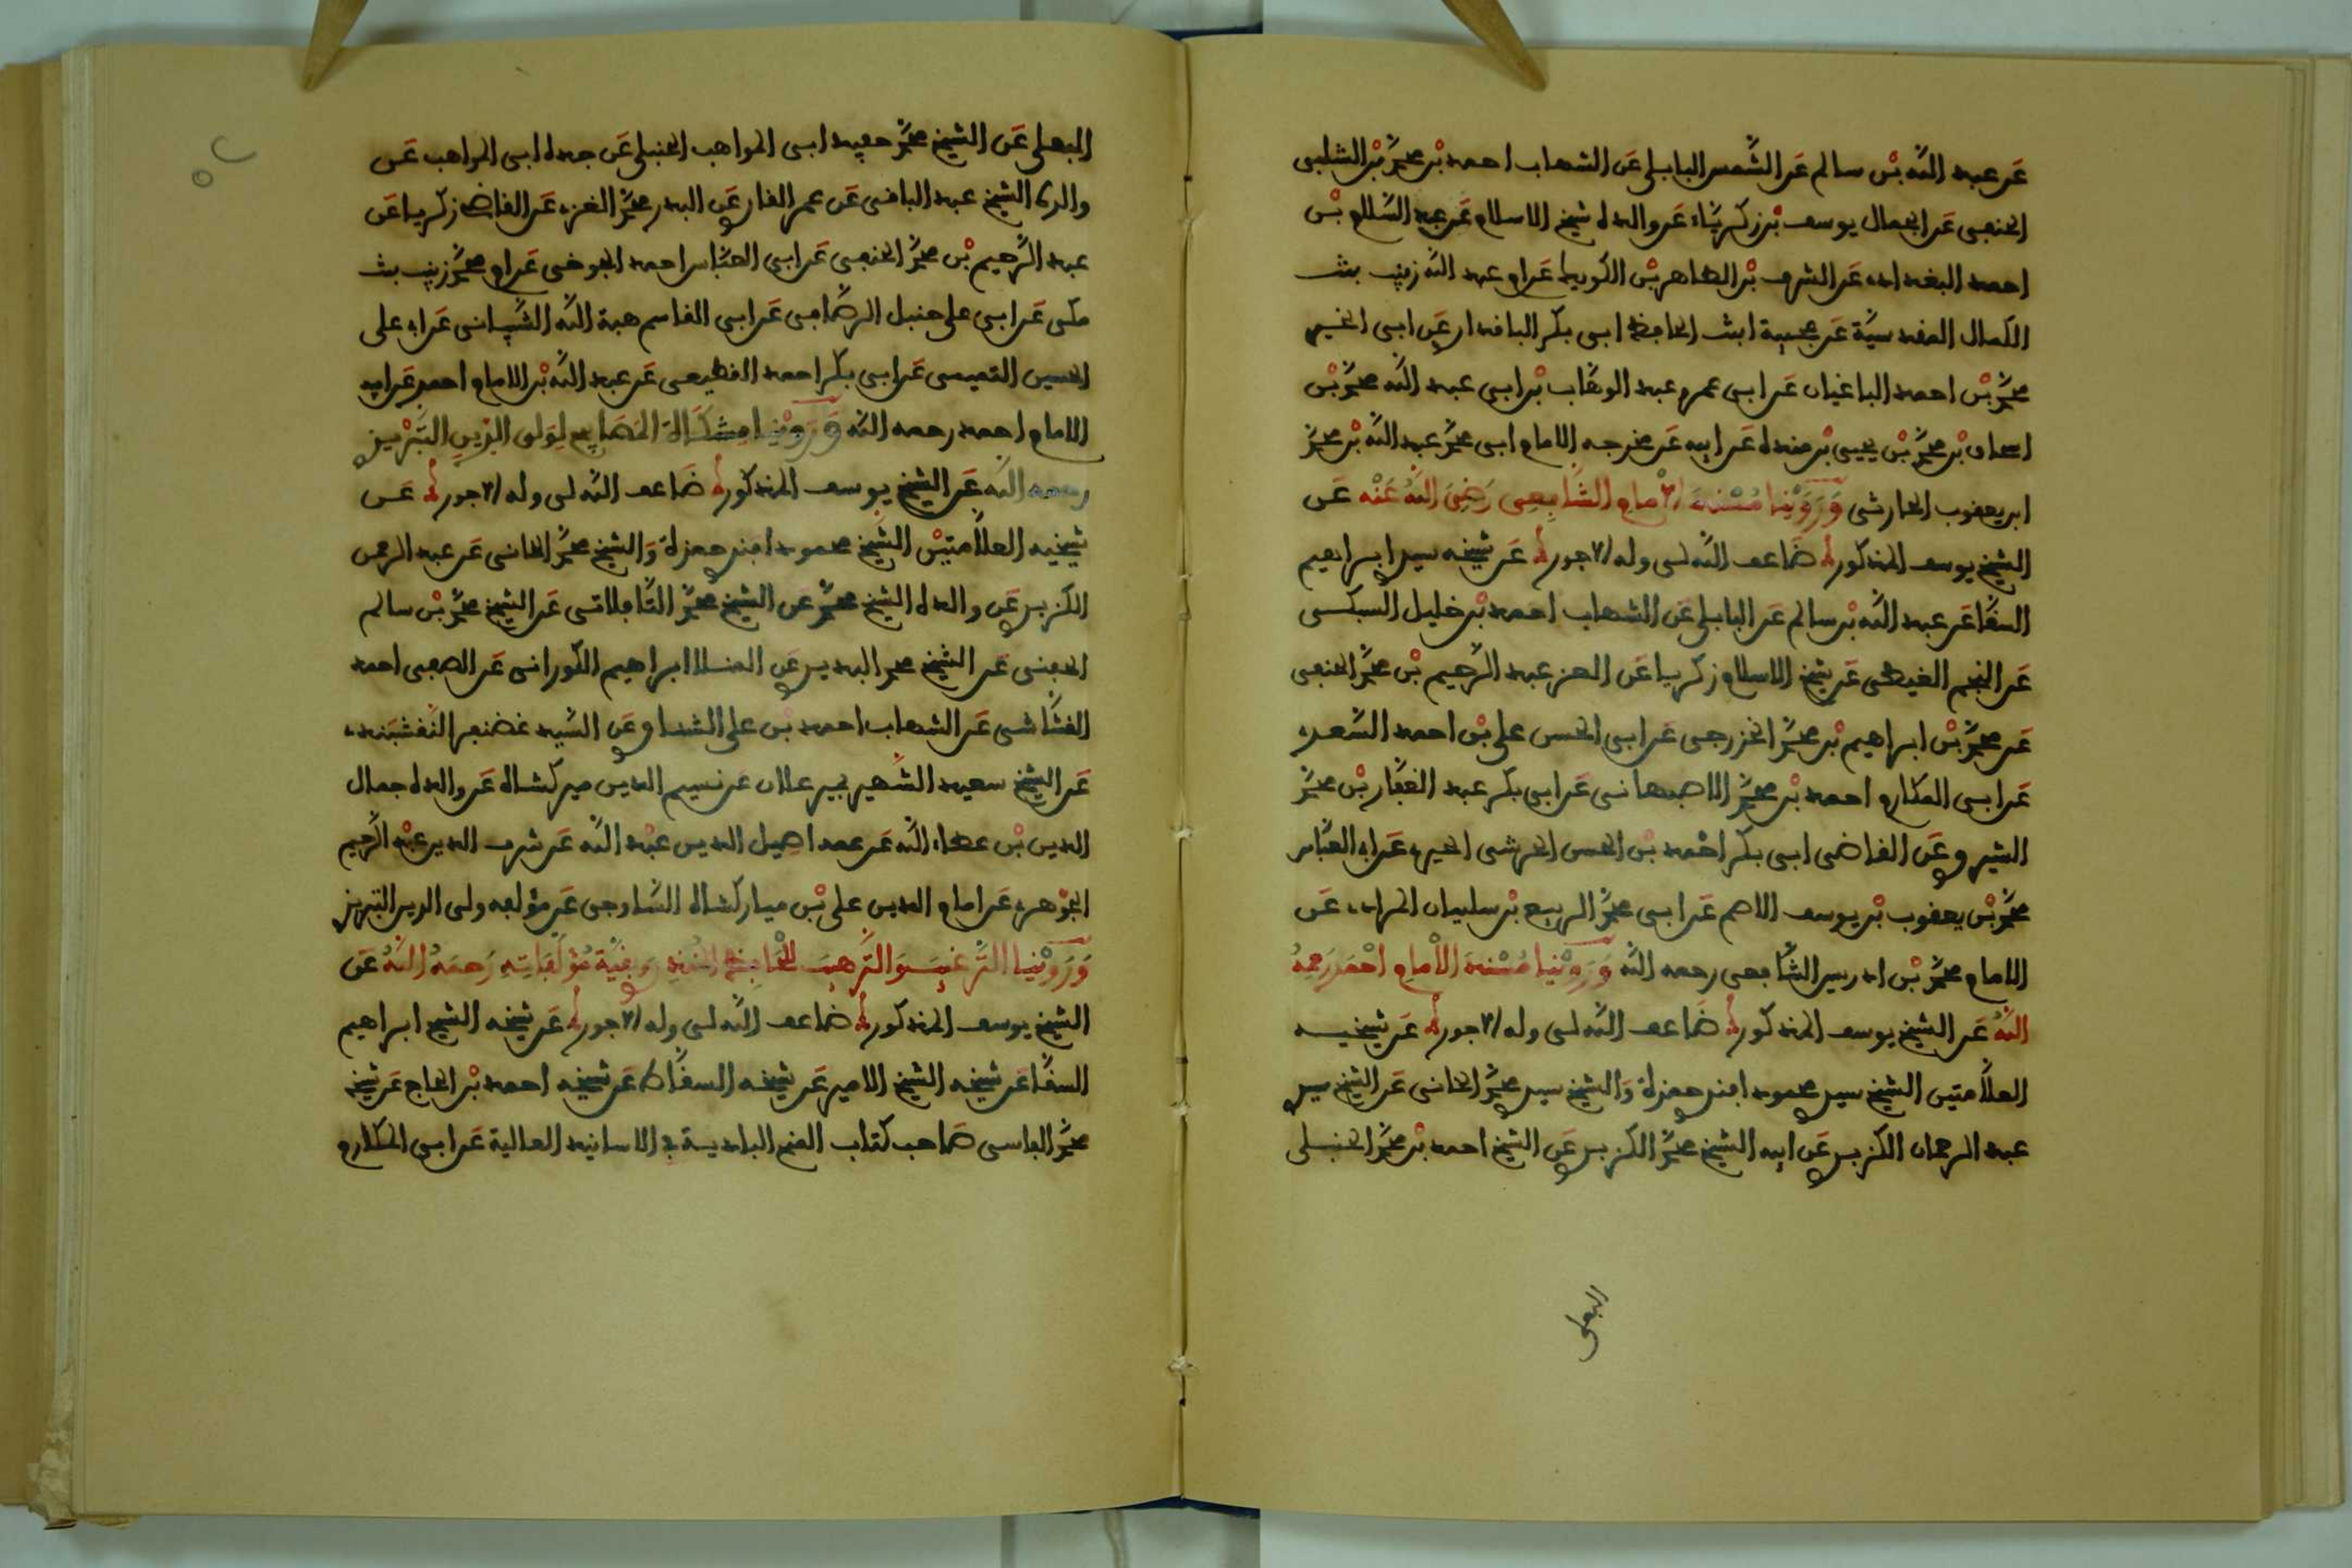 عن عبد الله بن سالم عن الشمس البابلي عن الشهاب احمد بن محمد بن الشلبي
الحنفي عن الجمال يوسف بن زكرياء عن والده شيخ الاسلام عن عبد السلام بن
احمد البغدادي عن الشرف بن الطاهر بن الكويط عن ام عبد الله زينب بنت
الكمال المقدسية عن عجيبة ابنت الحافظ ابي بكر الباقدار عن ابي الخير
محمد بن احمد الباغبان عن ابي عمر و عبد الوهاب بن ابي عبد الله محمد بن
اسحاق بن محمد بن يحيى بن منده عن ابيه عن مخرجه الامام ابي محمد عبد الله بن محمد
ابن يعقوب الحارثي وروينا مسند الامام الشافعي رضي الله عنه عن
الشيخ يوسف المذكور ضاعف الله لي وله الاجور عن شيخه سيد ابراهيم
السقا عن عبد الله بن سالم عن البابلي عن الشهاب احمد بن خليل السبكي
عن النجم الغيطي عن شيخ الاسلام زكريا عن العز عبد الرحيم بن محمد الحنفي
عن محمد بن ابراهيم بن محمد الخزرجي عن ابي الحسن علي بن احمد السعدي
عن ابي المكارم احمد بن محمد الاصبهاني عن ابي بكر عبد الغفار بن محمد
الشيروي عن القاضي ابي بكر احمد بن الحسن الحرشي الحيري عن ابي العباس
محمد بن يعقوب بن يوسف الاصم عن ابي محمد الربيع بن سليمان المرادي عن
الامام محمد بن ادريس الشافعي رحمه الله وروينا مسند الامام احمد رحمه
الله عن الشيخ يوسف المذكور ضاعف الله لي وله الاجور عن شيخيه
العلامتين الشيخ سيد محمود افندي حمزة والشيخ سيد محمد الخاني عن الشيخ سيدي
عبد الرحمان الكزبري عن ابيه الشيخ محمد الكزبري عن الشيخ احمد بن محمد الحنبلي
البعلي
البعلي عن الشيخ محمد حفيد ابي المواهب الحنبلي عن جده ابي المواهب عن
والده الشيخ عبد الباقي عن عمر القاري عن البدر محمد الغزي عن القاضي زكريا عن
عبد الرحيم بن محمد الحنفي عن ابي العباس احمد الجوخي عن ام محمد زينب بنت
مكي عن ابي علي حنبل الرصافي عن ابي القاسم هبة الله الشيباني عن ابي علي
الحسين التميمي عن ابي بكر احمد القطيعي عن عبد الله بن الامام احمد عن ابيه
الامام احمد رحمه الله وروينا مشكاة المصابيح لولي الدين التبريزي
رحمه الله عن الشيخ يوسف المذكور ضاعف الله لي وله الاجور عن
شيخيه العلامتين الشيخ محمود افندي حمزة والشيخ محمد الخاني عن عبد الرحمن
الكزبري عن والده الشيخ محمد عن الشيخ محمد التافلاتي عن الشيخ محمد بن سالم
الحفني عن الشيخ محمد البديري عن المنلا ابراهيم الكوراني عن الصفي احمد
القشاشي عن الشهاب احمد بن علي الشناوي عن السيد غضنفر النقشبندي
عن الشيخ سعيد الشهير بمير علان عن نسيم الدين ميركشاه عن والده جمال
الدين بن عطاء الله عن عمه اصيل الدين عبد الله عن شرف الدين عبد الرحيم
الجوهري عن امام الدين علي بن مباركشاه الساوجي عن مؤلفه ولي الدين التبريزي
وروينا الترغيب والترهيب للحافظ المنذري وبقية مؤلفاته رحمه الله عن
الشيخ يوسف المذكور ضاعف الله لي وله الاجور عن شيخه الشيخ ابراهيم
السقا عن شيخه الشيخ الامير عن شيخه السقاط عن شيخه احمد بن الحاج عن شيخه
محمد الفاسي صاحب كتاب المنح البادية في الاسانيد العالية عن ابي المكارم